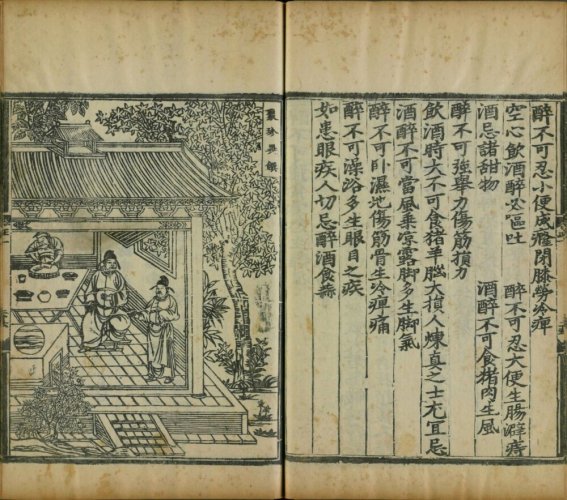 醉不可忍小便成癃閉膝勞冷痺
空心飲酒醉必嘔吐 醉不可忍大便生腸澼痔
酒忌諸甜物 酒醉不可食猪肉生風
醉不可強舉力傷筋損力
飲酒時大不可食猪羊腦大損人煉真之士尤宜忌
酒醉不可當風乘涼露脚多生脚氣
醉不可卧濕地傷筋骨生冷痺痛
醉不可澡浴多生眼目之疾
如患眼疾人切忌醉酒食蒜
聚珍異饌